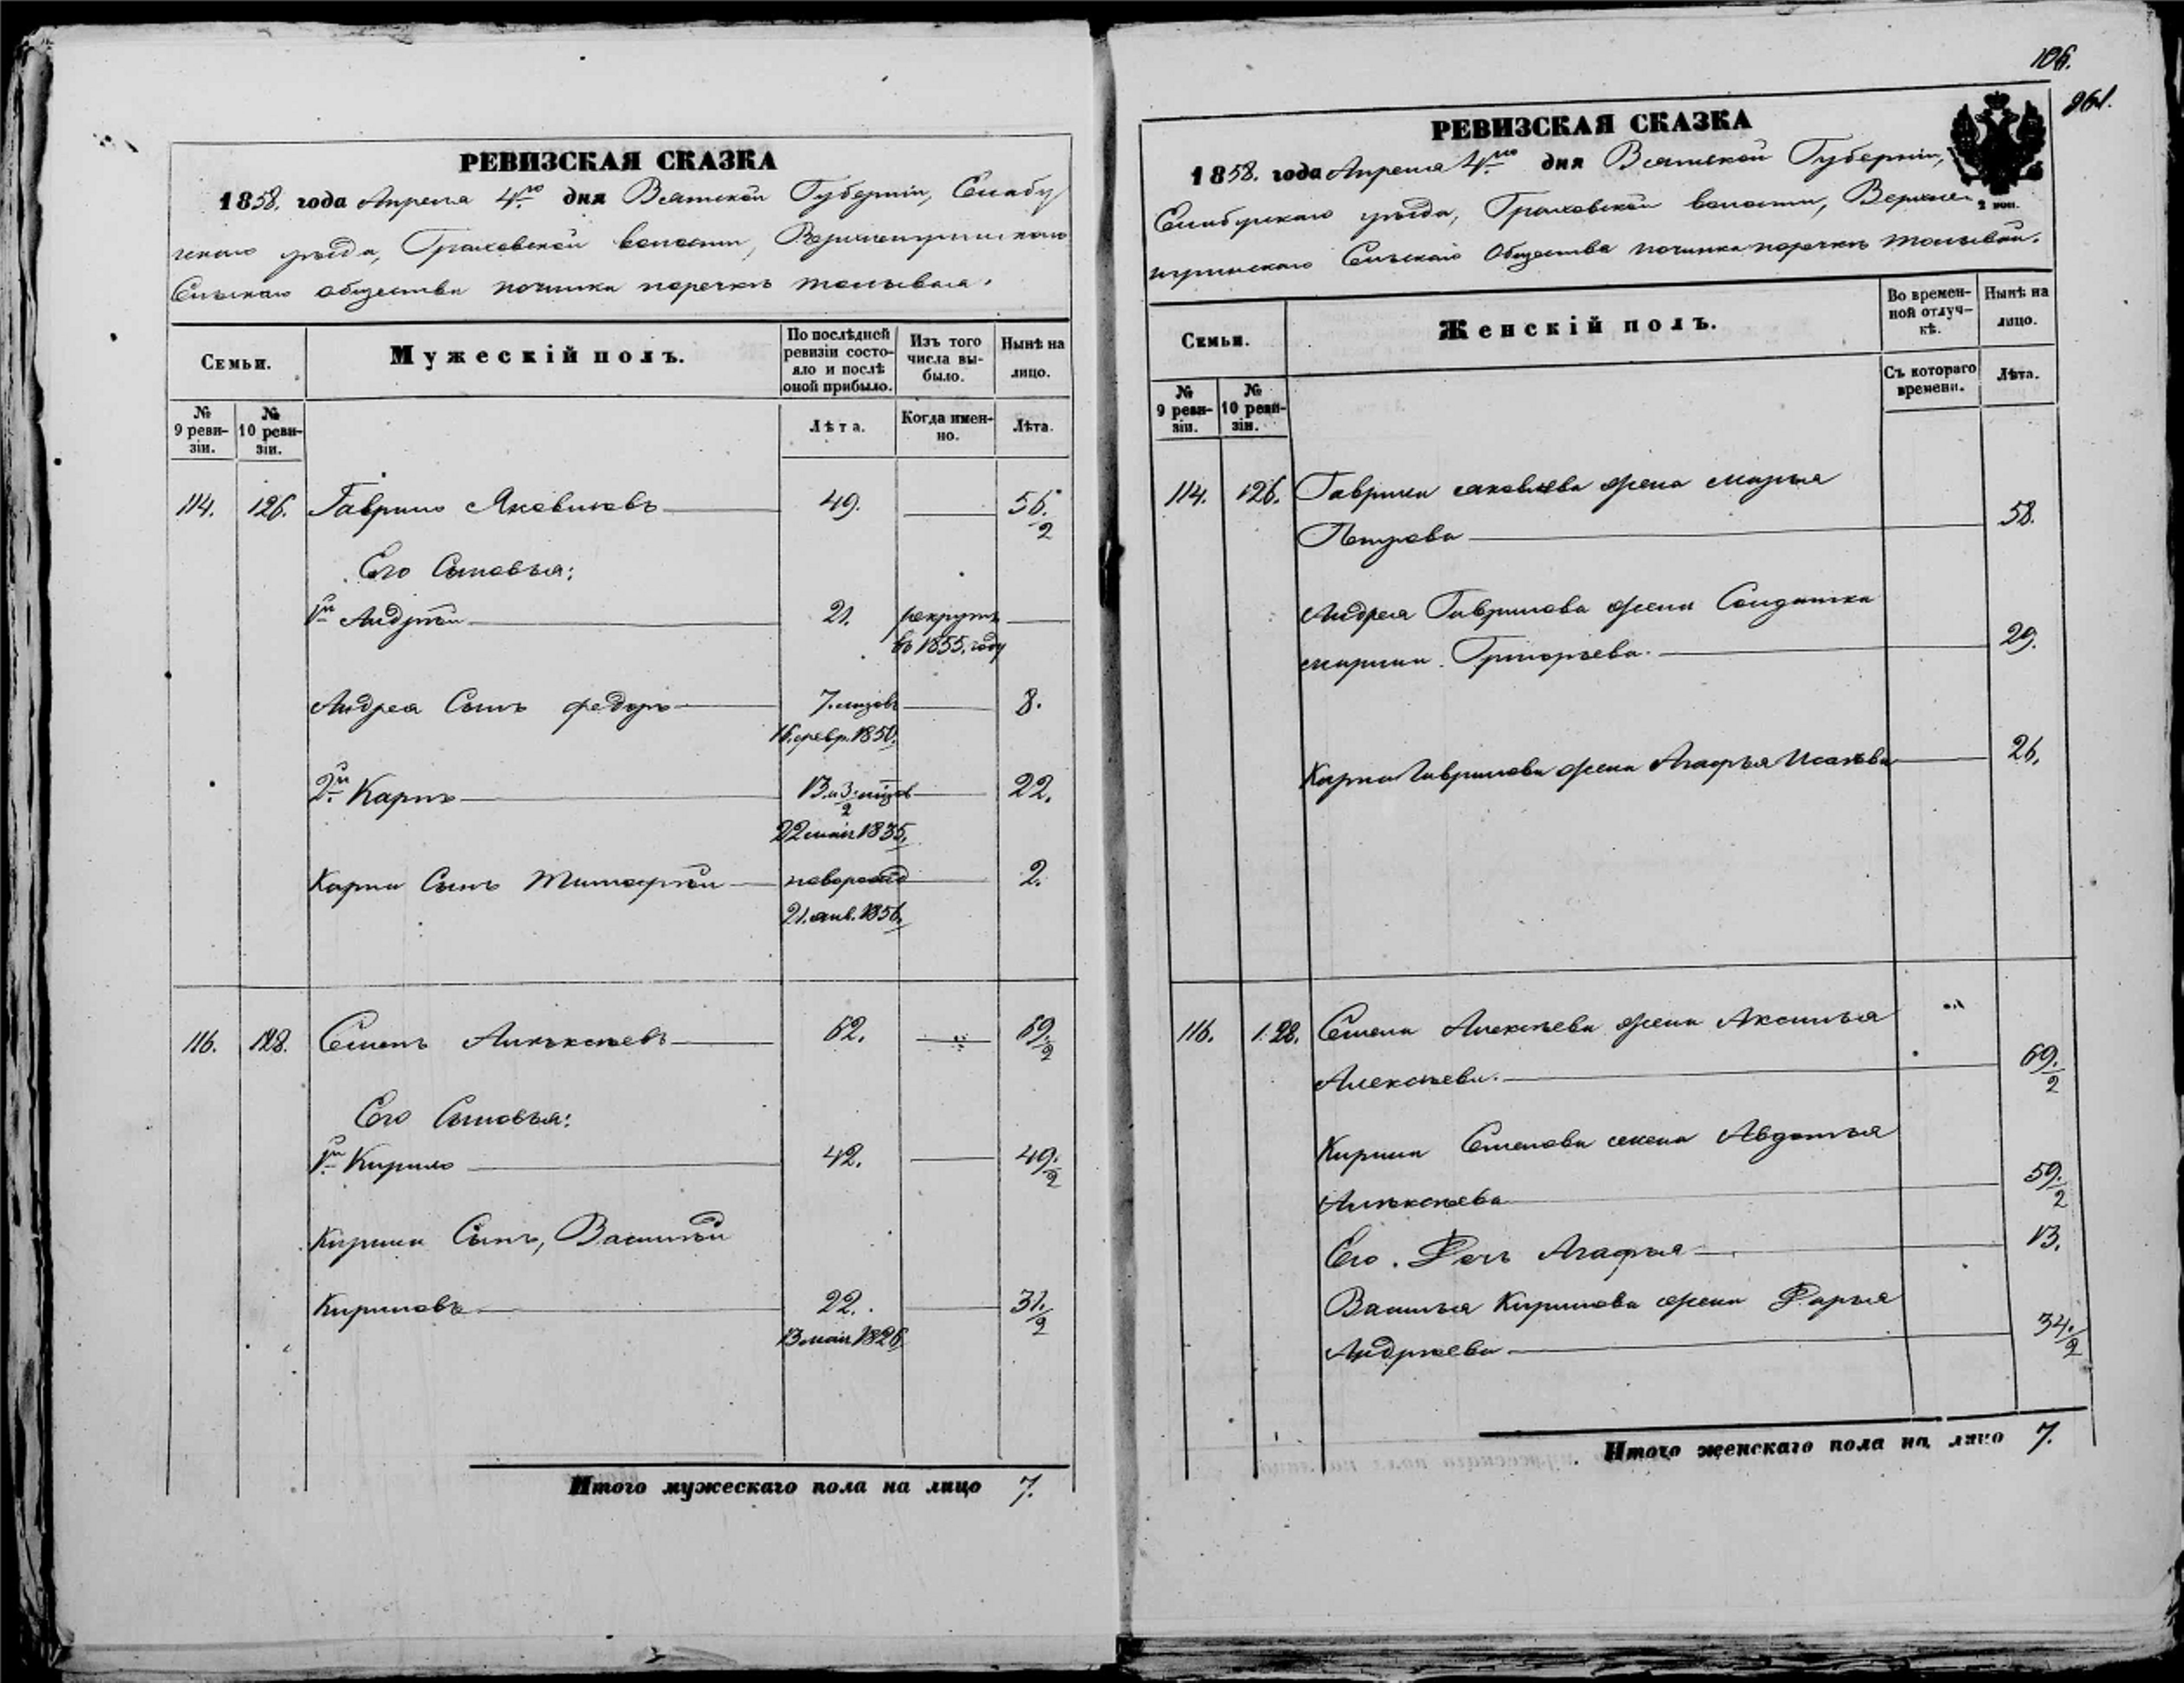 РЕВИЗСКАЯ СКАЗКА
1858. года Апреля 4го дня Вятской Губерніи, Елабу
жскаго уѣзда, Граховской волости,
Сельскаго общества починка поречкѣ
Семьи.
Мужескій полъ.
По послѣдней ревизіи состояло и послѣ оной прибыло.
Изъ того числа выбыло.
Нынѣ на лицо.
№ 9 ревизіи.
№ 10 ревизіи.
Лѣта.
Когда именно.
Лѣта.
114. 126. Гаврило Яковлевъ 49. 56./2
Его Сыновья:
1й Андрѣй 21. рекрутъ
въ 1855. году
Андрея Сынъ федоръ 7. 8.
16. февр. 1850.
2й Карпъ 13. и 3/2 22.
22 мая 1835.
Карпа Сынъ Тимофѣй 2.
21. янв. 1856.
116. 128. Семенъ Алѣксѣевъ 62. 69./2
Его Сыновья:
1й Кирило 42. 49./2
Кирила Сынъ, Василѣй
Кириловъ 22. 31./2
13 мая 1826
Итого мужескаго пола на лицо 7.
106.
261.
РЕВИЗСКАЯ СКАЗКА
1858. года Апреля 4го дня Вятской Губерніи,
Елабужскаго уѣзда, Граховской волости,
Сельскаго Общества починка поречкѣ
2 коп.
Семьи.
Женскій полъ.
Во временной отлучкѣ.
Нынѣ на лицо.
№ 9 ревизіи.
№ 10 ревизіи.
Съ котораго времени.
Лѣта.
114. 126. Гаврила яковлева жена марья
Петрова 58.
Андрея Гаврилова жена Солдатка
марина Григорьева. 29.
Карпа Гаврилова жена Агафья Исаева 26.
116. 128. Семена Алексѣева жена Аксинья
Алексѣева. 69./2
Кирила Семенова жена Авдотья
Алѣксѣева 59./2
Его Дочь Агафья 13.
Василья Кирилова жена Дарья
Андрѣева 34./2
Итого женскаго пола на лицо 7.